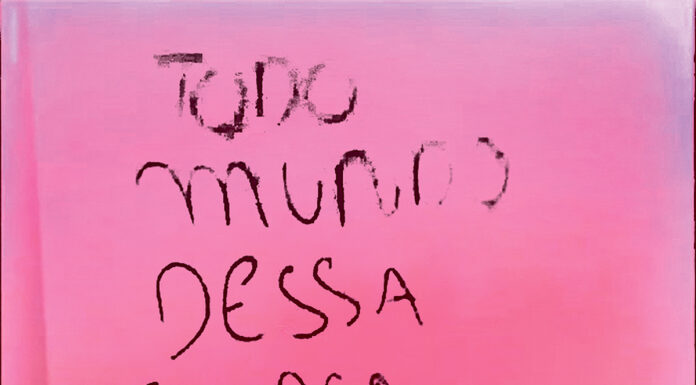 TODO
MUNDO
DESSA